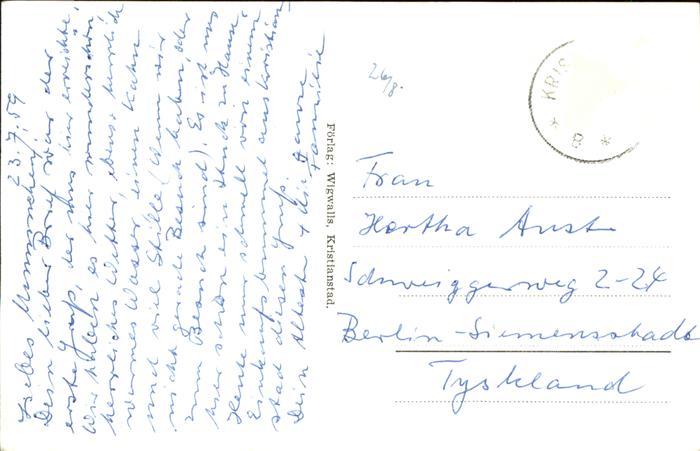 23.7.59
Liebes
Dein lieber Brief war der
erste Gruß, der uns hier erreichte,
Wir haben es hier wunderschön
herrliches Wetter, ebenso herrlich
warmes Wasser, einen Kahn
und viel Stille (Wenn wir
nicht gerade Besuch haben, oder
zum Besuch sind). Es ist uns
hier schon ein Stück zu Hause,
Heute nur schnell von einem
Einkaufsbummel aus Kristian
stad diesen Gruß.
Dein + die ganze
Familie
Förlag: Wigwalls, Kristianstad.
26/8.
KRIS
* 8 *
Frau
Hertha Aust
Schweiggerweg 2-24
Berlin-Siemensstadt
Tyskland